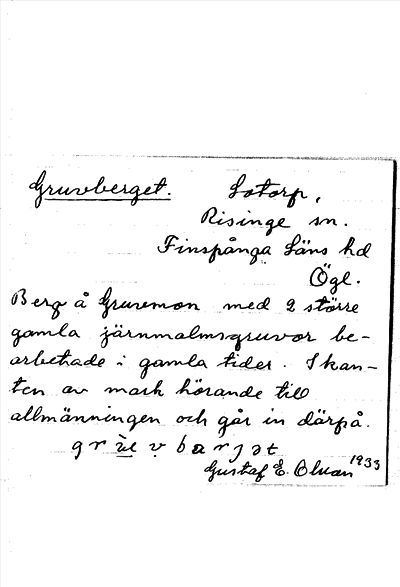 Gruvberget. Lotorp,
Risinge sn.
Finspånga Läns hd
Ögl.
Berg å Gruvmon med 2 större
gamla järnmalmsgruvor be-
arbetade i gamla tider. I kan-
ten av mark hörande till
allmänningen och går in därpå.
grùvbarjət
Gustaf E. Olsson 1933